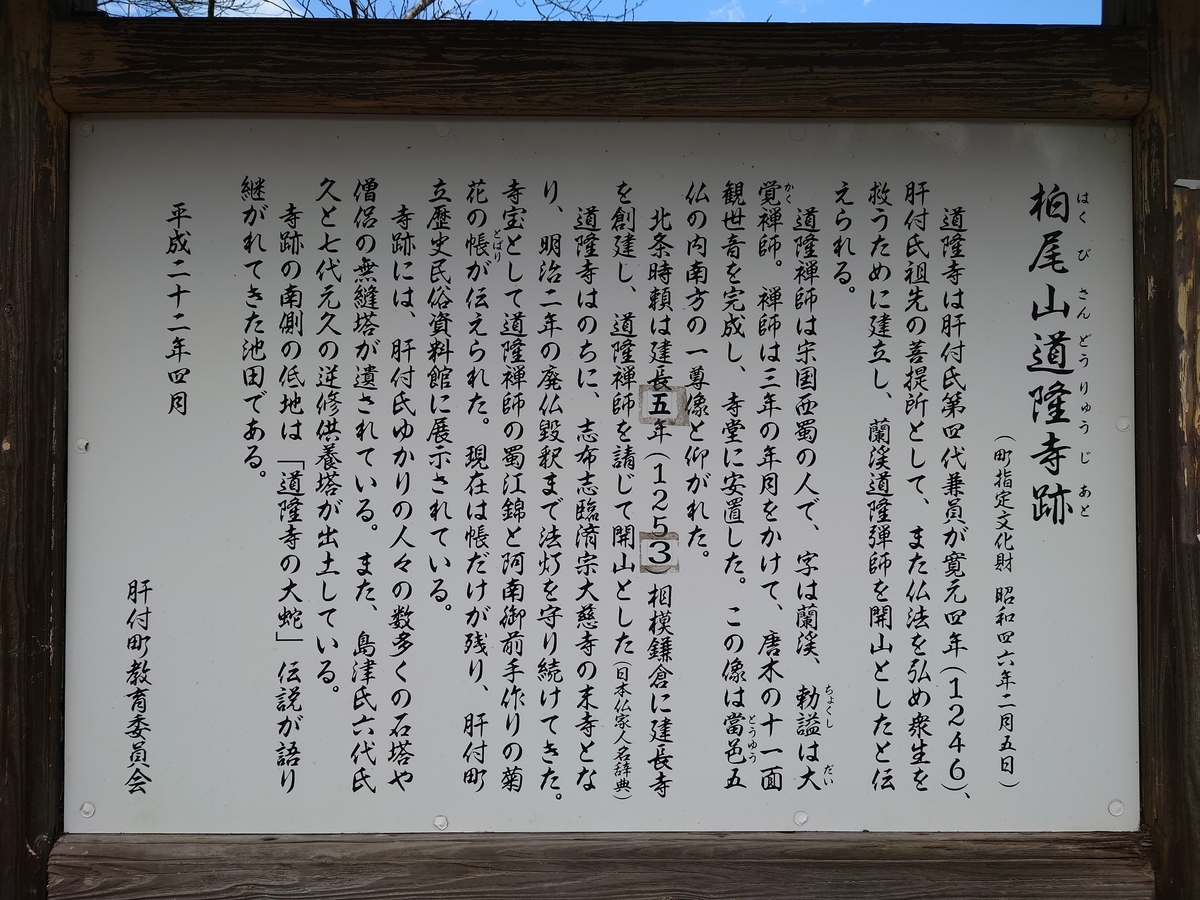 柏尾山道隆寺跡
はくびさんどうりゅうじあと
（町指定文化財 昭和四六年二月五日）
道隆寺は肝付氏第四代兼員が寛元四年(1246)、
肝付氏祖先の菩提所として、また仏法を弘め衆生を
救うために建立し、蘭渓道隆弾師を開山としたと伝
えられる。
道隆禅師は宋国西蜀の人で、字は蘭渓、勅謚は大
ちょくし だい
覚禅師。禅師は三年の年月をかけて、唐木の十一面
かく
観世音を完成し、寺堂に安置した。この像は當邑五
とうゆう
仏の内南方の一尊像と仰がれた。
北条時頼は建長五年(1253)相模鎌倉に建長寺
を創建し、道隆禅師を請じて開山とした(日本仏家人名辞典)
道隆寺はのちに、志布志臨済宗大慈寺の末寺とな
り、明治二年の廃仏毀釈まで法灯を守り続けてきた。
寺宝として道隆禅師の蜀江錦と阿南御前手作りの菊
花の帳が伝えられた。現在は帳だけが残り、肝付町
とばり
立歴史民俗資料館に展示されている。
寺跡には、肝付氏ゆかりの人々の数多くの石塔や
僧侶の無縫塔が遺されている。また、島津氏六代氏
久と七代元久の逆修供養塔が出土している。
寺跡の南側の低地は「道隆寺の大蛇」伝説が語り
継がれてきた池田である。
平成二十二年四月
肝付町教育委員会